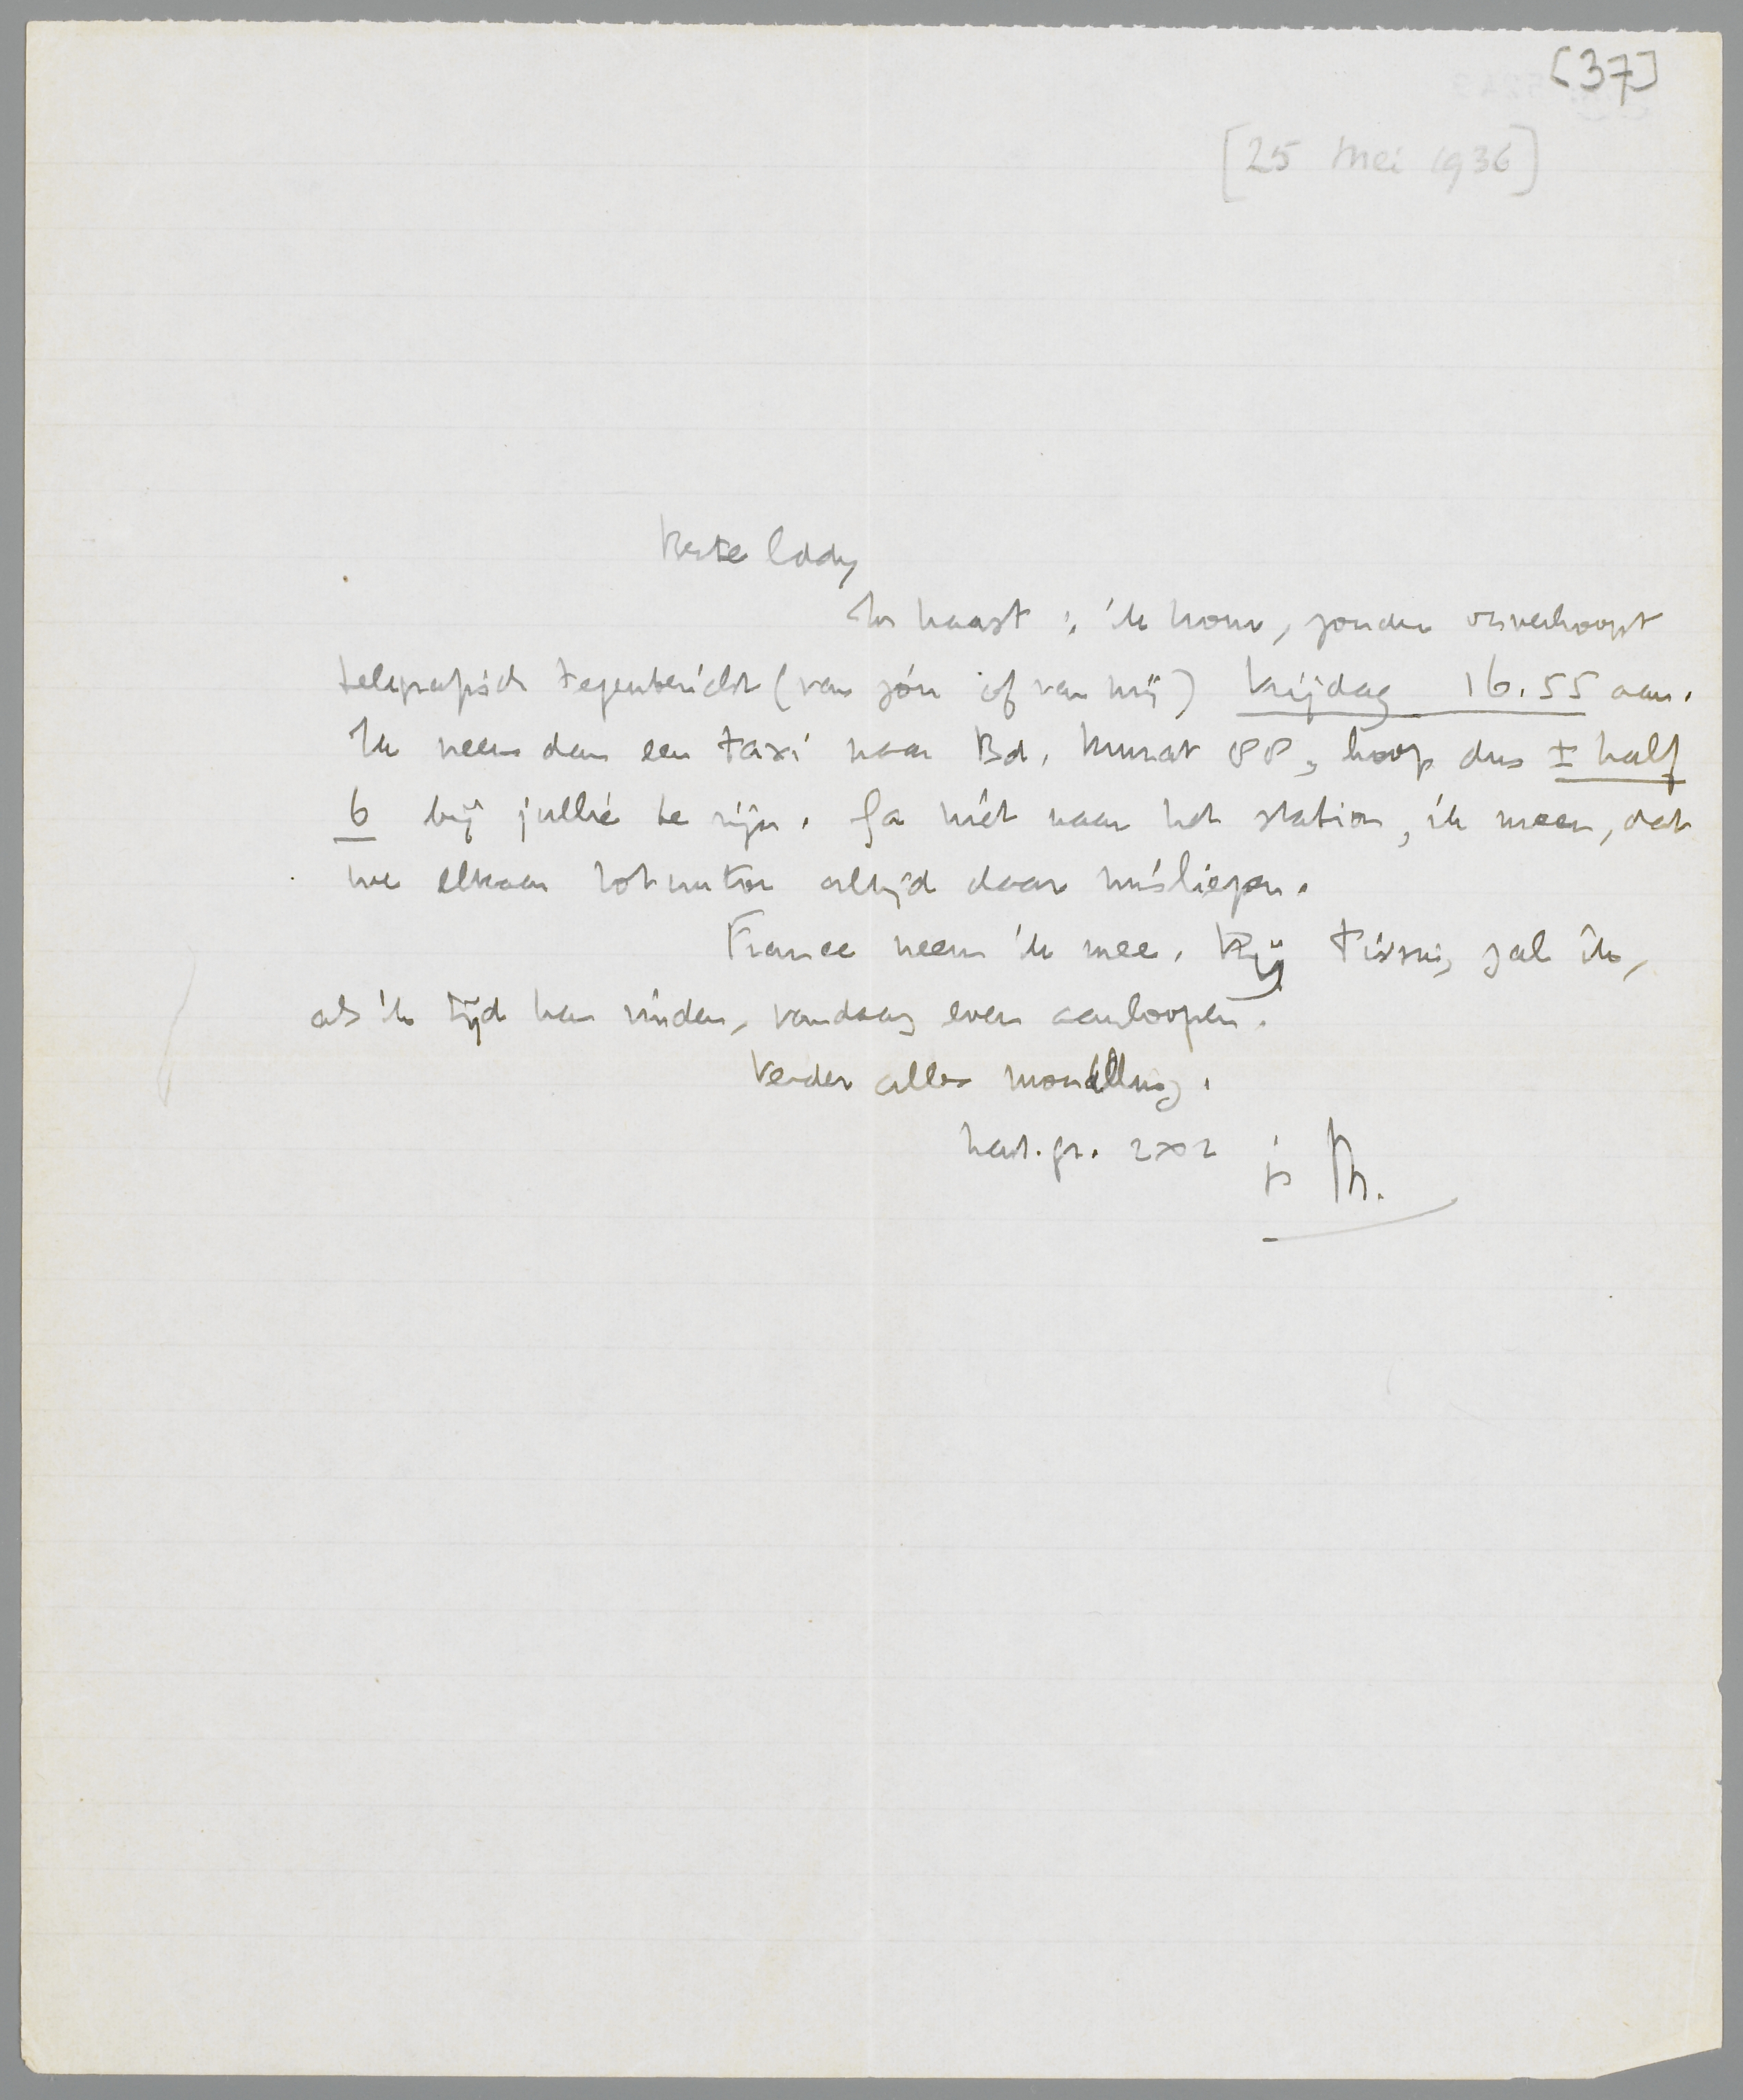 [37]
[25 Mei 1936]
Beste Eddy
In haast: ik kom, zonder onverhoopt
telegrafisch tegenbericht (van jóu of van mij) Vrijdag 16.55 aan.
Ik neem dan een taxi naar Bd. Murat 88, hoop dus ± half
6 bij jullie te zijn. Ga niét naar het station, ik meen, dat
we elkaar tot nu toe altijd daar misliepen.
France neem ik mee. Bij zal ik,
als ik tijd kan vinden, vandaag even aanloopen.
Verder alles mondeling.
hart. gr. 2 x 2 je M.